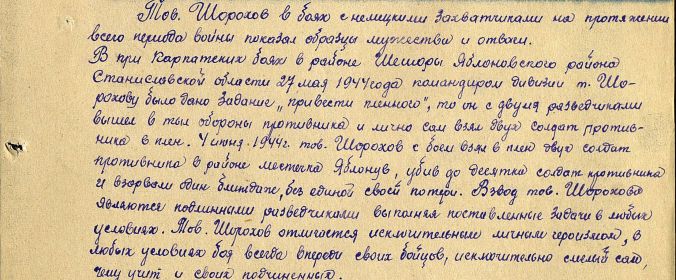 Тов. Шорохов в боях с немецкими захватчиками на протяжении
всего периода войны показал образцы мужества и отваги.
В при Карпатских боях в районе Шешоры Яблоновского района
Станиславской области 27 мая 1944 года командиром дивизии т. Шо-
рохову было дано задание „привести пленного", то он с двумя разведчиками
вышел в тыл обороны противника и лично сам взял двух солдат против-
ника в плен. 4 июня 1944г. тов. Шорохов с боем взял в плен двух солдат
противника в районе местечка Яблонув, убив до десятка солдат противника
и взорвали один блиндаж, без единой своей потери. Взвод тов. Шорохова
являются подлинными разведчиками выполняя поставленные задачи в любых
условиях. Тов. Шорохов отличается исключительным личным героизмом, в
любых условиях боя всегда впереди своих бойцов, исключительно смелый сам,
чему учит и своих подчиненных.